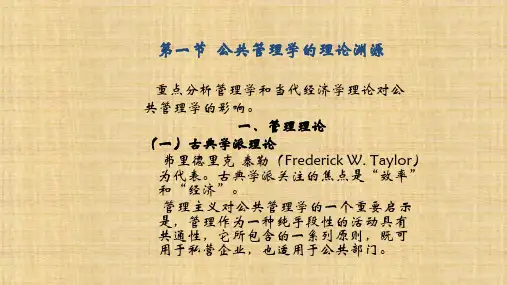 第一节 公共管理学的理论渊源
重点分析管理学和当代经济学理论对公
共管理学的影响。
一、管理理论
（一）古典学派理论
弗里德里克 泰勒（Frederick W. Taylor）
为代表。古典学派关注的焦点是“效率”
和“经济”。
管理主义对公共管理学的一个重要启示
是，管理作为一种纯手段性的活动具有
共通性，它所包含的一系列原则，既可
用于私营企业，也适用于公共部门。